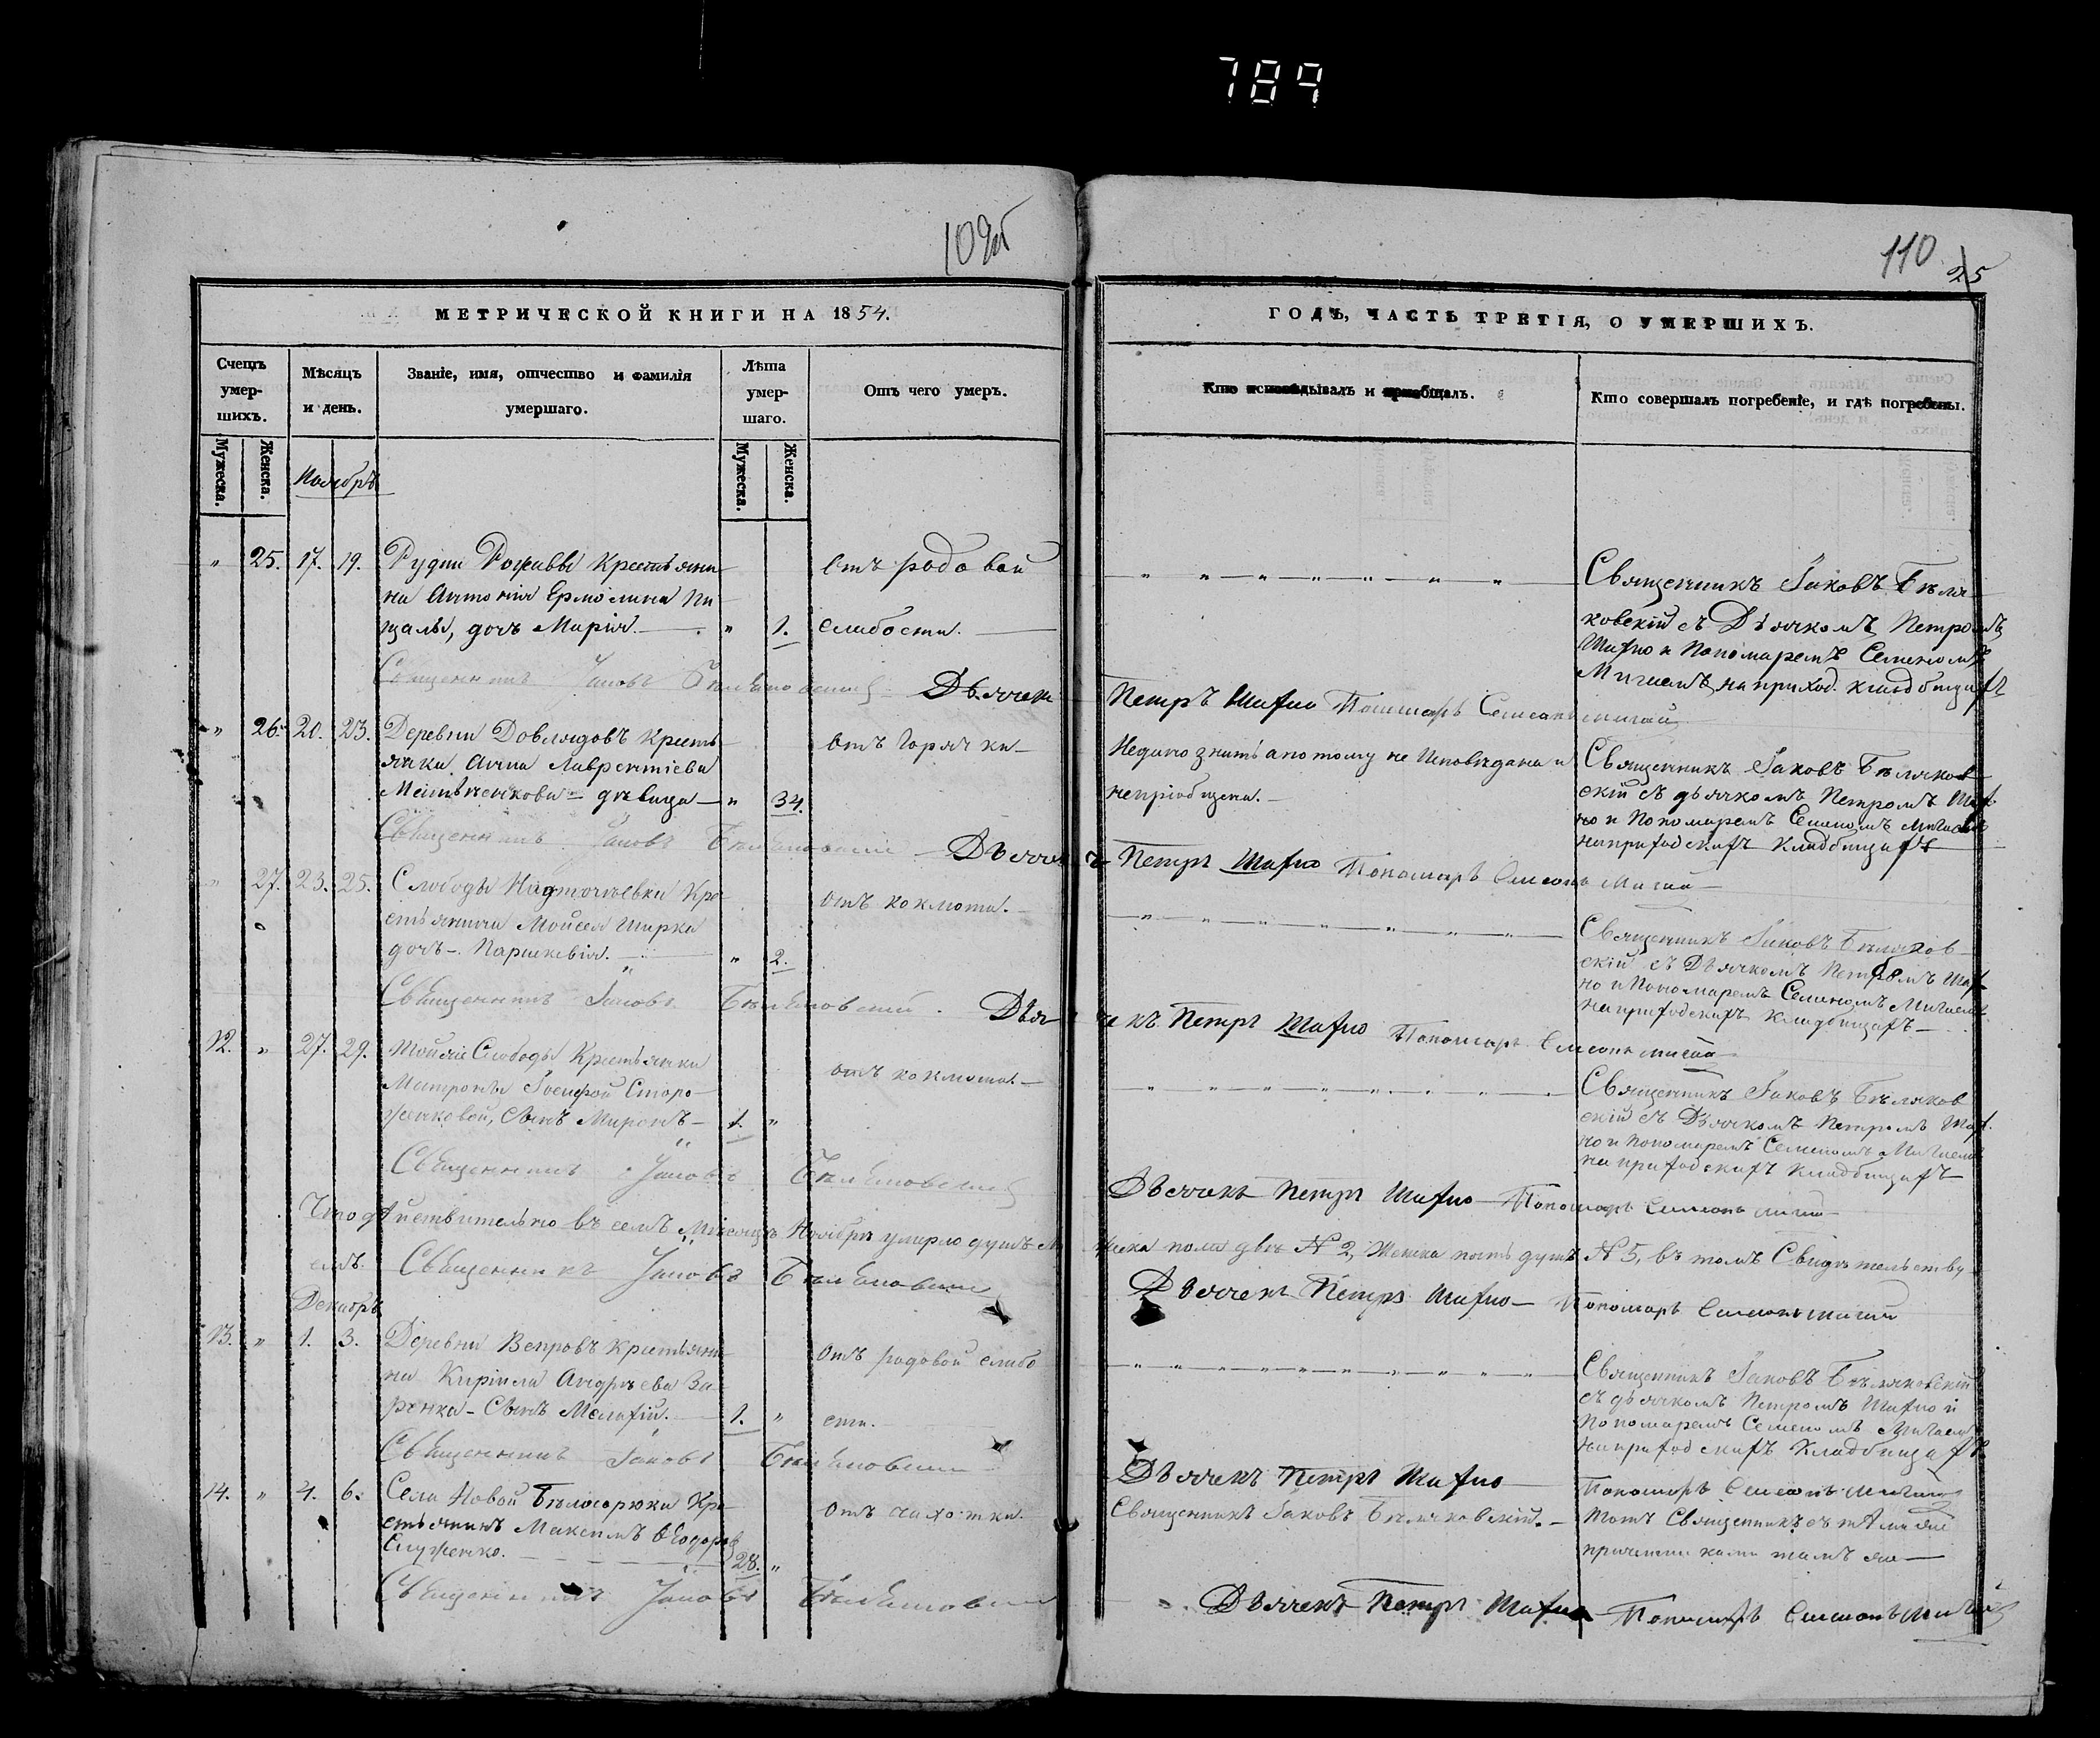 789
109об
110
25
МЕТРИЧЕСКОЙ КНИГИ НА 1854.
ГОДЪ, ЧАСТЬ ТРЕТІЯ, О УМЕРШИХЪ.
Счетъ умер-
шихъ.
Мѣсяцъ
и день.
Званіе, имя, отчество и фамилія
умершаго.
Лѣта
умер-
шаго.
Отъ чего умеръ.
Кто исповѣдывалъ и пріобщалъ.
Кто совершалъ погребеніе, и гдѣ погребены.
Мужеска.
Женска.
Мужеска.
Женска.
Ноябрь
" 25. 17. 19. Рудни Крестьяни-
на Антонія Ермолина Пи-
щалы, дочь Марія. " 1.
отъ родовой
слабости.
Священникъ Іаковъ Бѣля-
ковскій съ Дьячкомъ Петромъ
Махно и Пономаремъ Семеномъ
Мигаемъ на приход. кладбищахъ
Священникъ Іаковъ Бѣляковскій Дьячекъ Петръ Махно Пономарь Симеонъ Мигай
" 26. 20. 23. Деревни Довлядовъ Кресть-
янка Анна Лаврентіева
дѣвица " 34.
отъ Горячки
Недано знать а потому не Исповѣдана и
непріобщена.
Священникъ Іаковъ Бѣляков-
скій съ дьячкомъ Петромъ Мах-
но и Пономаремъ Семеномъ Мигаемъ
на приходскихъ Кладбищахъ
Священникъ Іаковъ Бѣляковскій Дьячекъ Петръ Махно Пономарь Симеонъ Мигай
" 27. 23. 25. Слободы Надточаевки Кре-
стьянина Мойсея Ширка
дочь Параскевія. " 2.
отъ коклюша.
Священникъ Іаковъ Бѣляков-
скій съ Дьячкомъ Петромъ Мах-
но и Пономаремъ Семеномъ Мигаемъ
на приходскихъ кладбищахъ
Священникъ Іаковъ Бѣляковскій. Дьячекъ Петръ Махно Пономарь Симеонъ Мигай
12. " 27. 29. Тойже Слободы Крестьянки
Матроны Іосифовой Сторо-
женковой, Сынъ Миронъ 1. "
отъ коклюша.
Священникъ Іаковъ Бѣляков-
скій съ Дьячкомъ Петромъ Мах-
но и пономаремъ Семеномъ Мигаемъ
на приходскихъ кладбищахъ
Священникъ Іаковъ Бѣляковскій Дьячекъ Петръ Махно Пономарь Симеонъ Мигай
Что дѣйствительно въ семъ Мѣсяцѣ Ноябрѣ умерло душъ Му-
жеска пола двѣ № 2, Женска пять душъ № 5, въ томъ Свидѣтельству-
емъ. Священникъ Іаковъ Бѣляковскій Дьячекъ Петръ Махно Пономарь Симеонъ Мигай
Декабрь
13. " 1. 3. Деревни Вепровъ Крестьяни-
на Кирилла Андреева За-
ренка Сынъ Мелафій. 1. "
отъ родовой слабо-
сти.
Священникъ Іаковъ Бѣляковскій
съ дьячкомъ Петромъ Махно и
Пономаремъ Семеномъ Мигаемъ
на приходскихъ Кладбищахъ.
Священникъ Іаковъ Бѣляковскій Дьячекъ Петръ Махно Пономарь Симеонъ Мигай
14. " 4. 6. Села Новой Кре-
стьянинъ Максимъ Ѳеодоровъ
28. "
отъ чахотки.
Священникъ Іаковъ Бѣляковскій.
Тотъ Священникъ съ тѣми же
причетниками тамъ же
Священникъ Іаковъ Бѣляковскій Дьячекъ Петръ Махно Пономарь Симеонъ Мигай